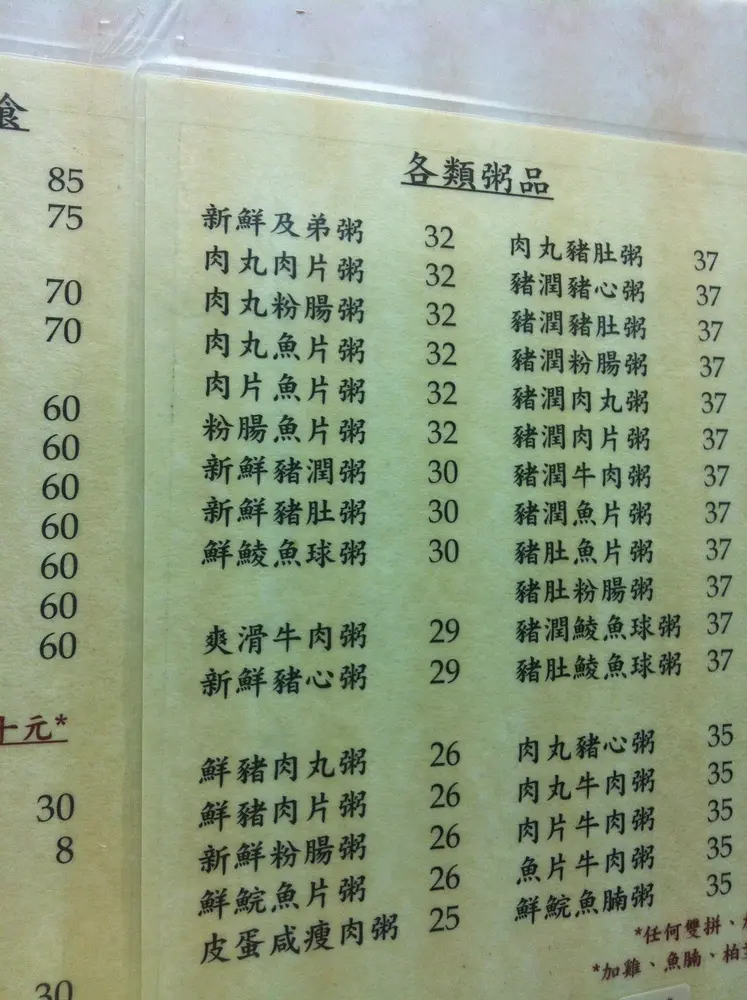 食
85
75
70
70
60
60
60
60
60
60
60
十元*
30
8
30
各類粥品
新鮮及弟粥 32
肉丸肉片粥 32
肉丸粉腸粥 32
肉丸魚片粥 32
肉片魚片粥 32
粉腸魚片粥 32
新鮮豬潤粥 30
新鮮豬肚粥 30
鮮鯪魚球粥 30
爽滑牛肉粥 29
新鮮豬心粥 29
鮮豬肉丸粥 26
鮮豬肉片粥 26
新鮮粉腸粥 26
鮮鯇魚片粥 26
皮蛋咸瘦肉粥 25
肉丸豬肚粥 37
豬潤豬心粥 37
豬潤豬肚粥 37
豬潤粉腸粥 37
豬潤肉丸粥 37
豬潤肉片粥 37
豬潤牛肉粥 37
豬潤魚片粥 37
豬肚魚片粥 37
豬肚粉腸粥 37
豬潤鯪魚球粥 37
豬肚鯪魚球粥 37
肉丸豬心粥 35
肉丸牛肉粥 35
肉片牛肉粥 35
魚片牛肉粥 35
鮮鯇魚腩粥 35
*任何雙拼、
*加雞、魚腩、柏